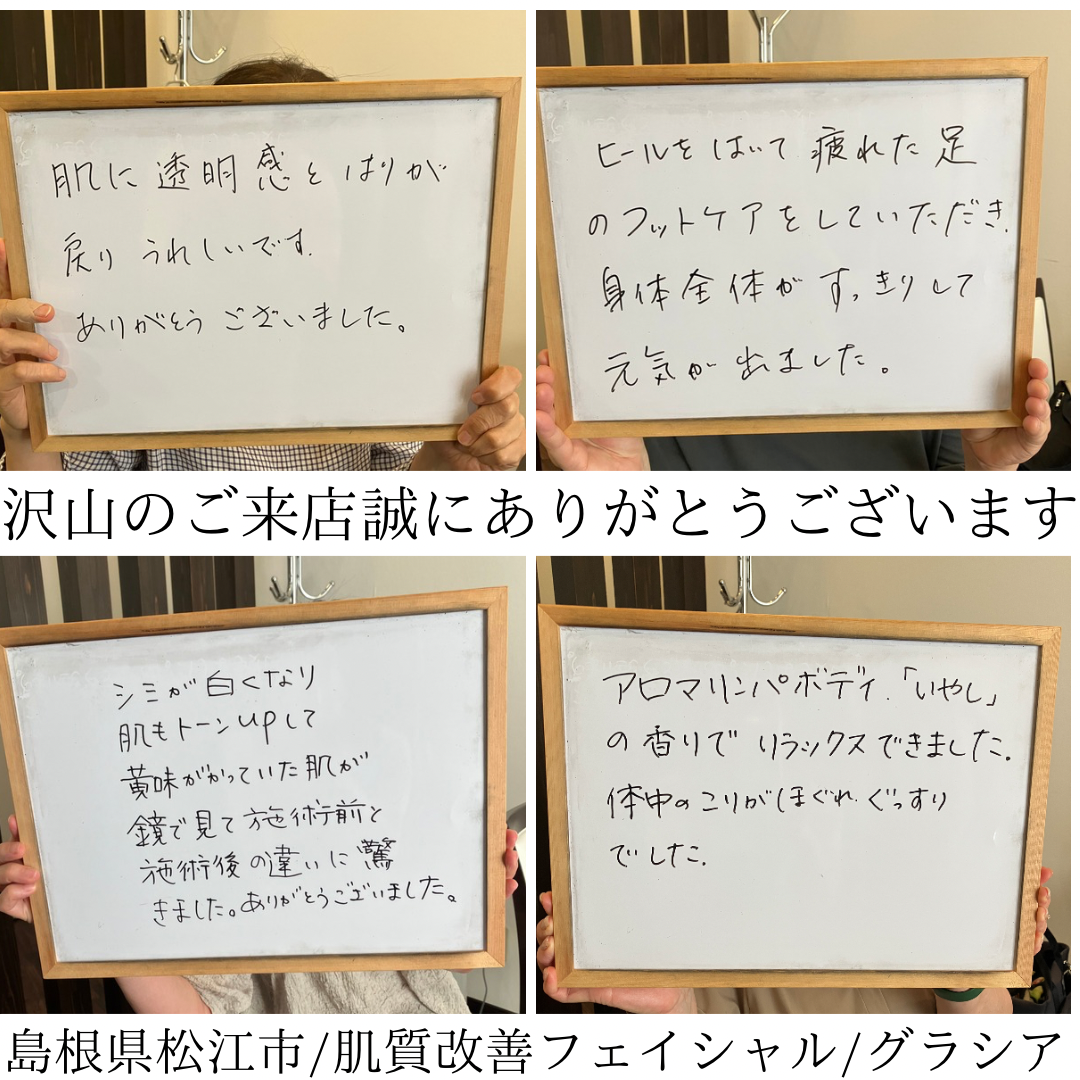 肌に透明感とはりが
戻りうれしいです.
ありがとうございました。
ヒールをはいて疲れた足
のフットケアをしていただき.
身体全体がすっきりして
元気が出ました。
沢山のご来店誠にありがとうございます
シミが白くなり
肌もトーンupして
黄味がかっていた肌が
鏡で見て施術前と
施術後の違いに驚
きました。ありがとうございました。
アロマリンパボディ.「いやし」
の香りでリラックスできました.
体中のこりがほぐれ.ぐっすり
でした.
島根県松江市/肌質改善フェイシャル/グラシア